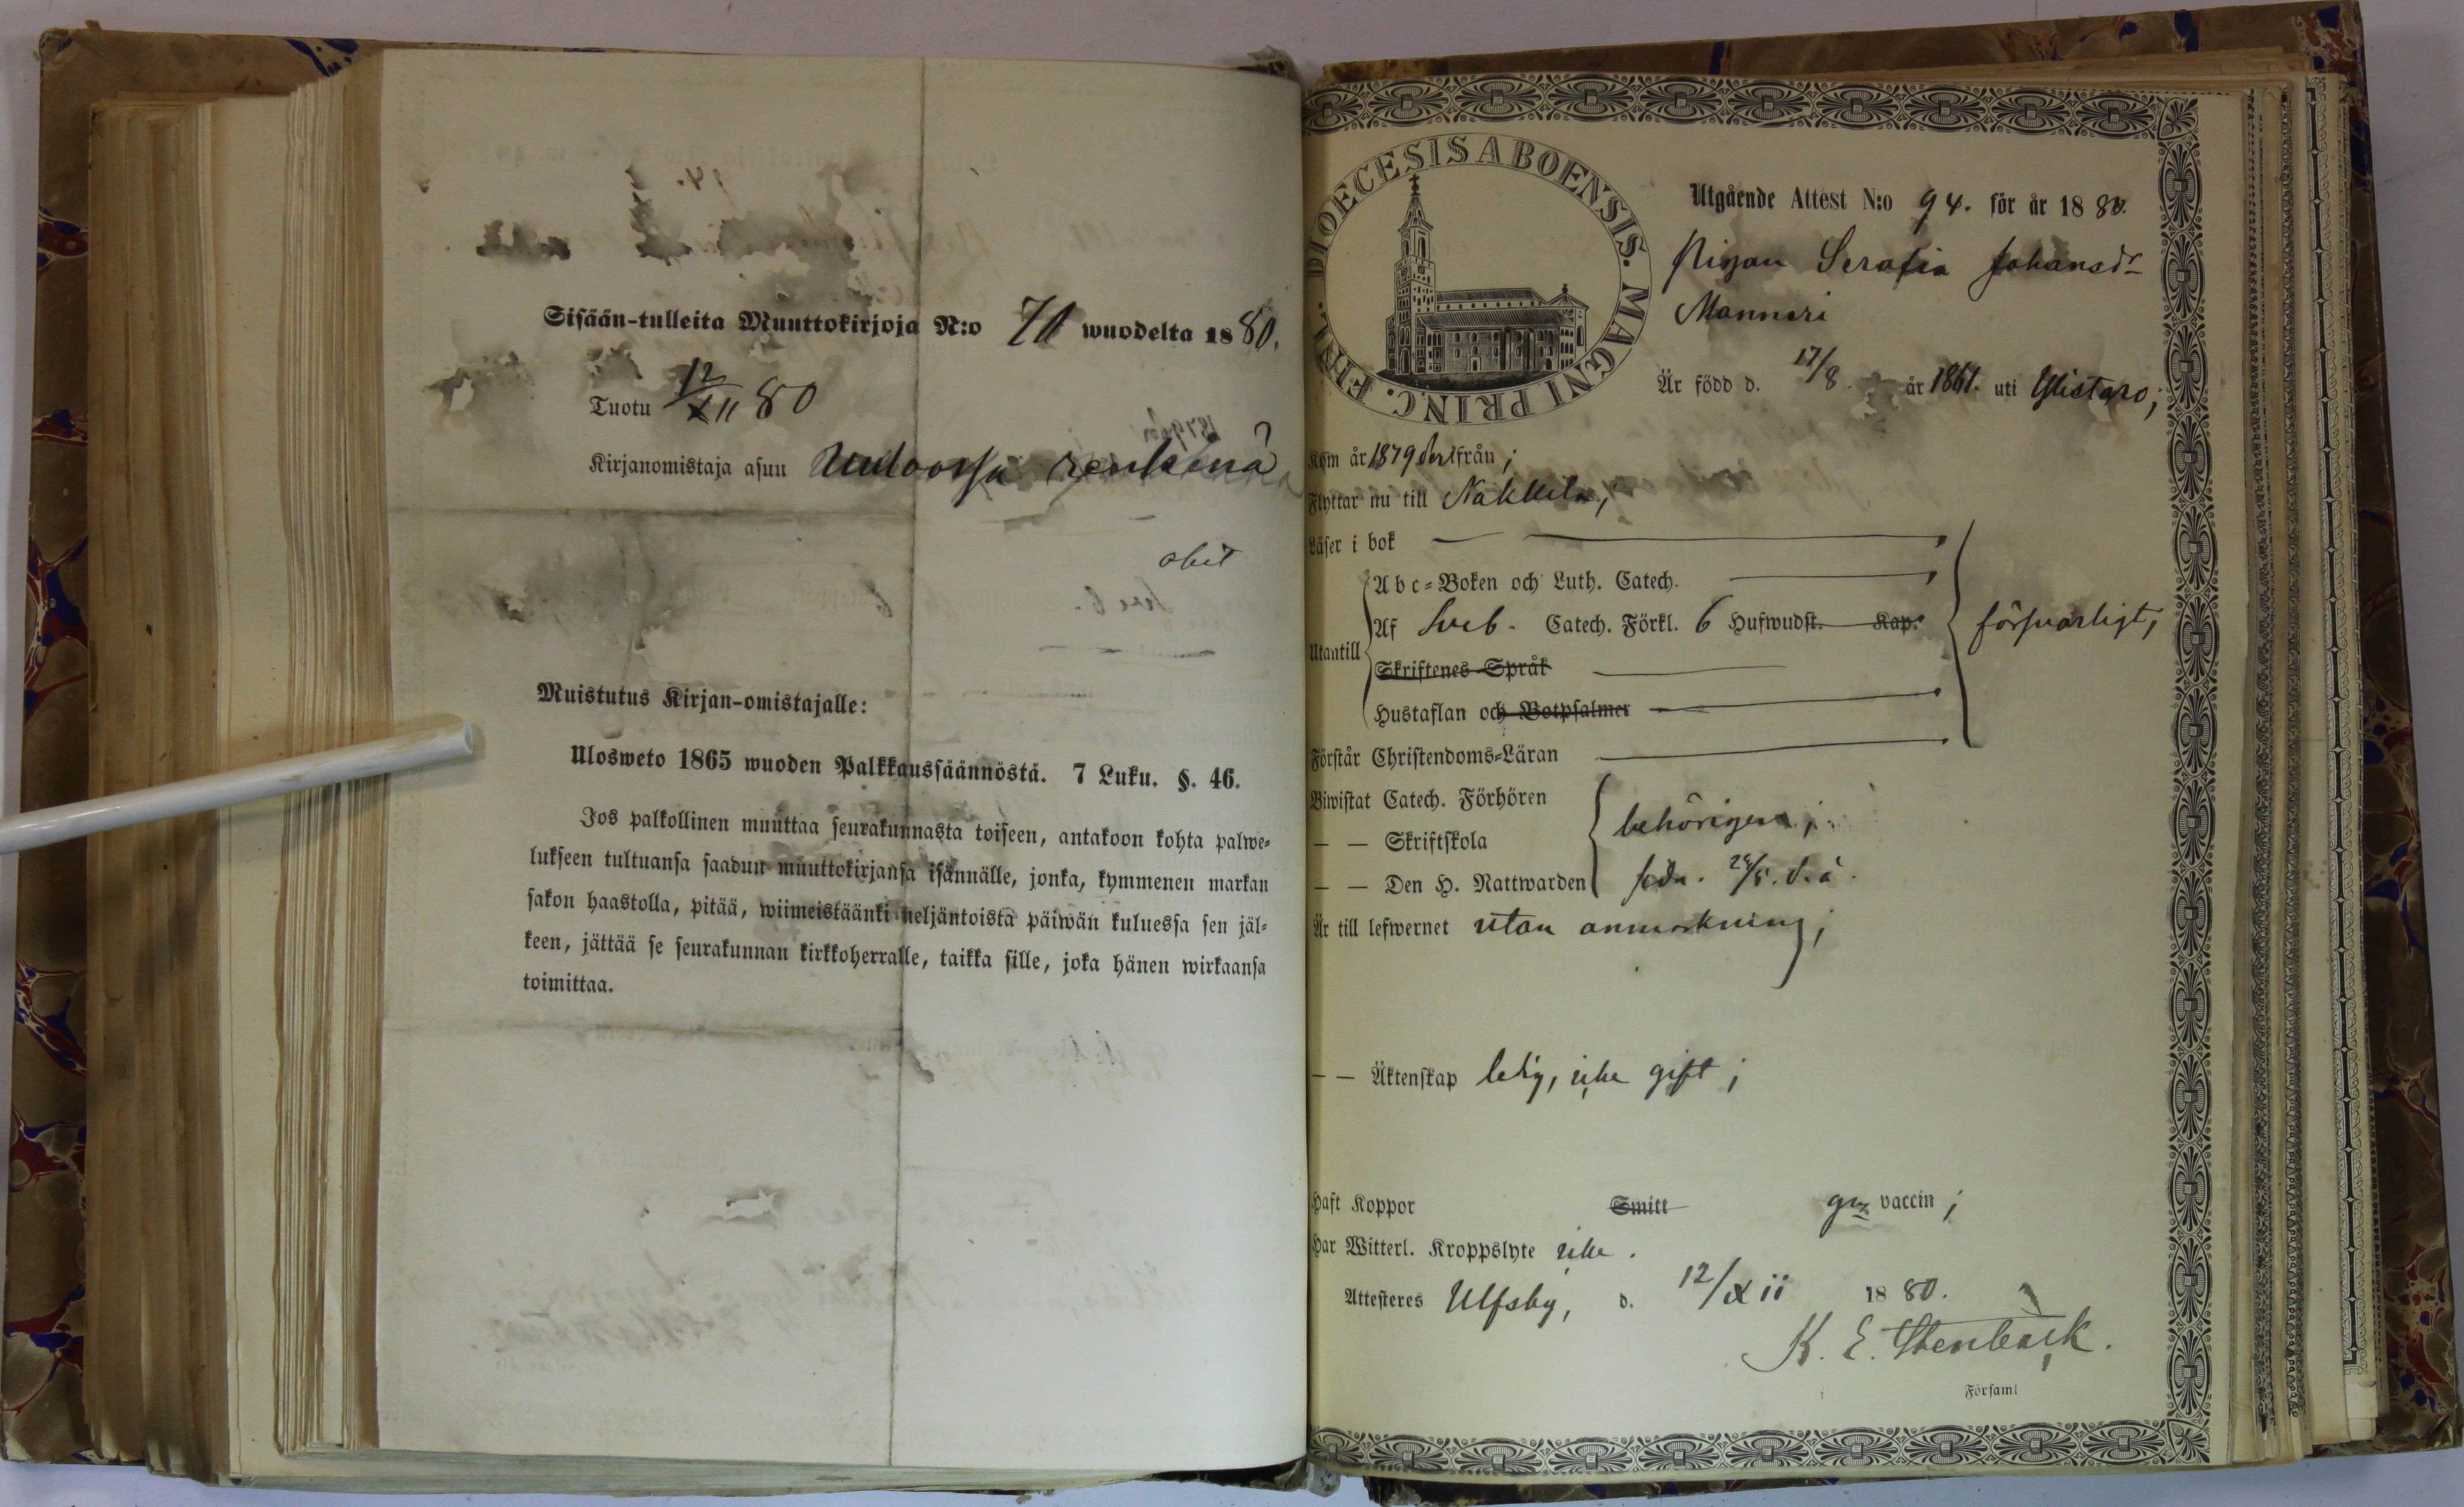 Sisään-tulleita Muuttokirjoja N:o 70 wuodelta 1880.
Tuotu 12/XII 80
Kirjanomistaja asuu renkinä
obit
Muistutus Kirjan-omistajalle:
Ulosweto 1865 wuoden Palkkaussäännöstä. 7 Luku. §. 46.
Jos palkollinen muuttaa seurakunnasta toiseen, antakoon kohta palwe-
lukseen tultuansa saadun muuttokirjansa isännälle, jonka, kymmenen markan
sakon haastolla, pitää, wiimeistäänki neljäntoista päiwän kuluessa sen jäl-
keen, jättää se seurakunnan kirkkoherralle, taikka sille, joka hänen wirkaansa
toimittaa.
DIOECESIS ABOENSIS. MAGNI PRINC. FINL.
Utgående Attest N:o 94. för år 1880.
Pigan Serafia Johansdr
Manneri
Är född d. 17/8. år 1861. uti Ylistaro;
Kom år 1879 från;
Flyttar nu till Nakkila;
Läser i bok
Abc-Boken och Luth. Catech.
Af Sveb. Catech. Förkl. 6 Hufwudst. Kap.
försvarligt;
Utantill
Skriftenes Språk
Hustaflan och Botpsalmer
Förstår Christendoms-Läran
Biwistat Catech. Förhören
— — Skriftskola
behörigen;
— — Den H. Nattwarden
Är till lefwernet utan anmärkning;
— — Äktenskap ledig, icke gift;
Haft Koppor Smitt vaccin;
Har Witterl. Kroppslyte icke.
Attesteres Ulfsby, d. 12/XII 1880.
K. E. Stenbäck.
Församl